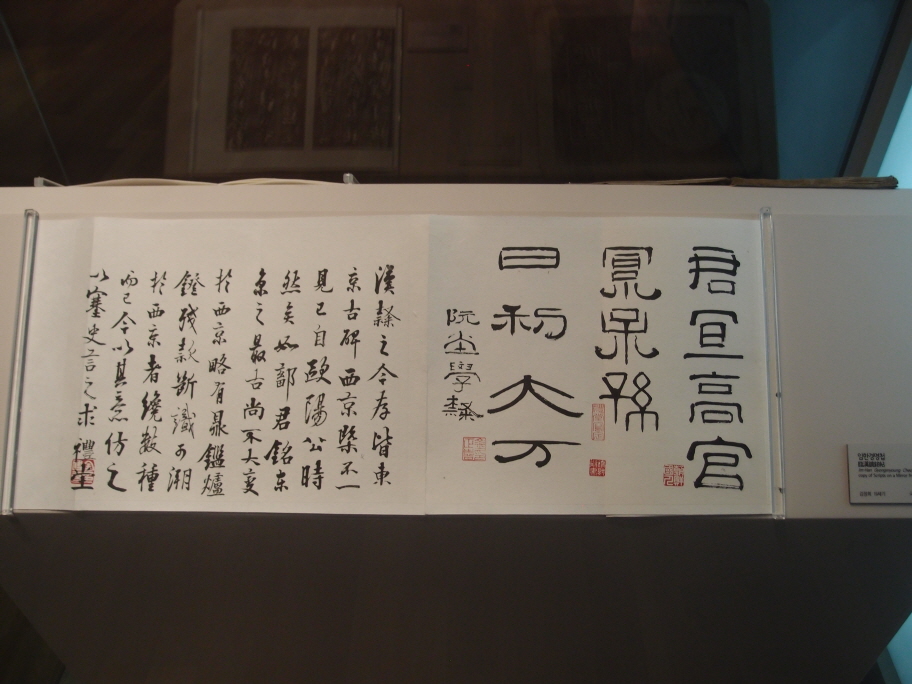 君宜高官
呆孫
日利大万
阮堂學隸
漢隸之今存皆東
京古碑西京槩不一
見已自歐陽公時
然矣如鄐君銘東
京之最古尚不大变
於西京略有鼎鑑爐
鐙殘款斷識可溯
於西京者纔數種
而已今以其意仿之
以塞史言之求 禮堂
임한경명첩
臨漢鏡銘帖